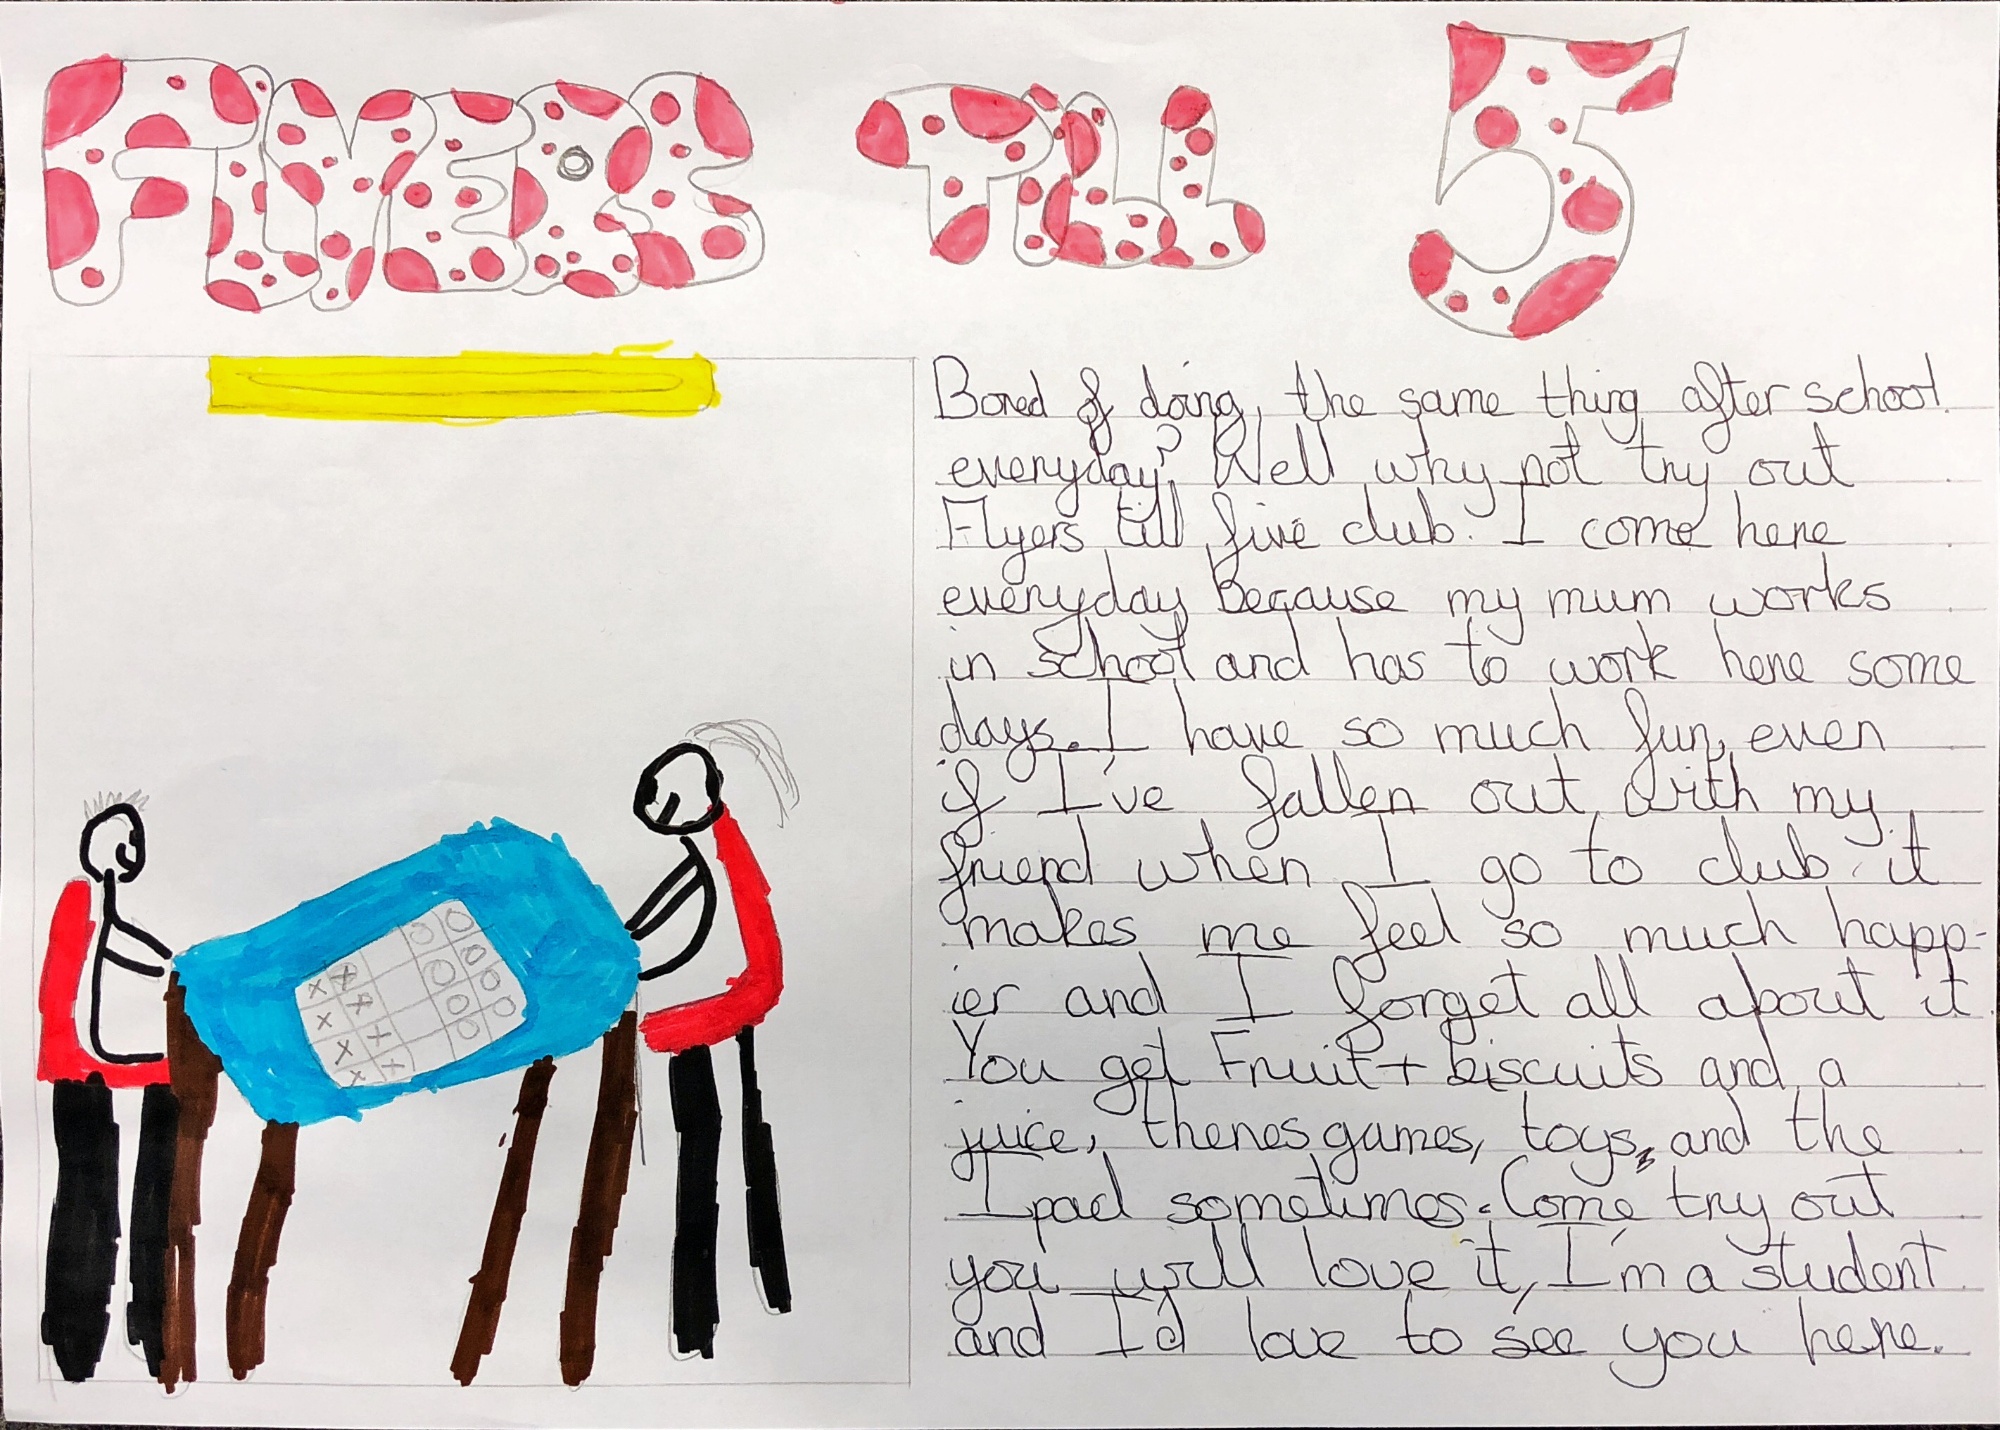 FLYERS TILL 5
Bored of doing, the same thing after school
everyday? Well why not try out
Flyers till five club. I come here
everyday because my mum works
in school and has to work here some
days. I have so much fun, even
if I've fallen out with my
friend when I go to club it
makes me feel so much happ-
ier and I forget all about it.
You get Fruit + biscuits and a
juice, theres games, toys, and the
Ipad sometimes. Come try out
you will love it, I'm a student
and I'd love to see you here.
x x o o
x x o o
x x o o
x x o o